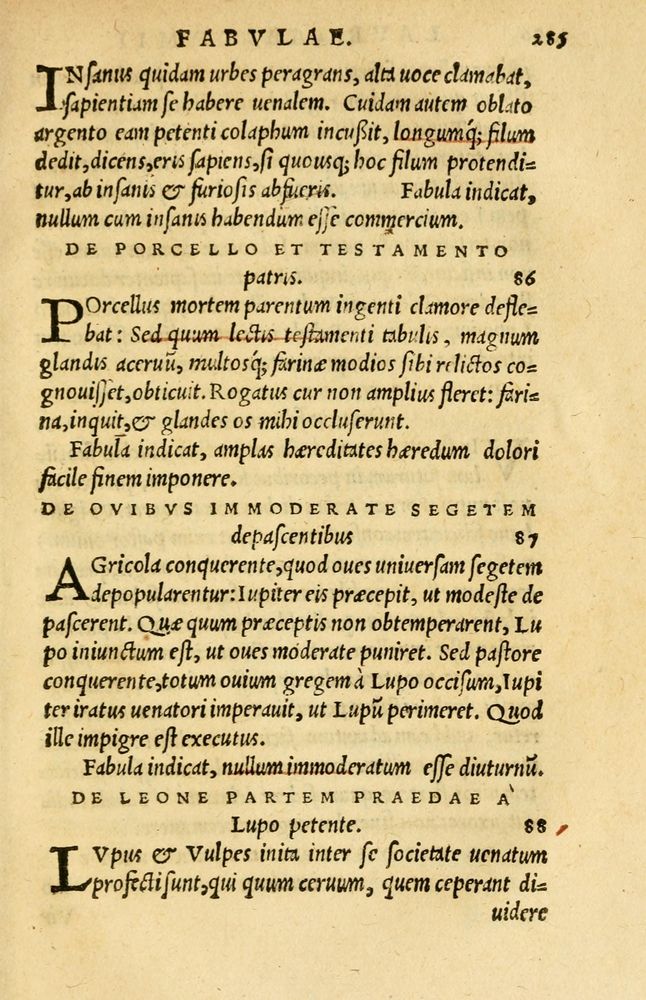 FABVLAE. 285
INsanus quidam urbes peragrans, alta uoce clamabat,
sapientiam se habere uenalem. Cuidam autem oblato
argento eam petenti colaphum incußit, longumq́; filum
dedit, dicens, eris sapiens, si quousq; hoc filum protendi=
tur, ab insanis & furiosis abfueris. Fabula indicat,
nullum cum insanis habendum esse commercium.
DE PORCELLO ET TESTAMENTO
patris. 86
POrcellus mortem parentum ingenti clamore defle=
bat: Sed quum lectis testamenti tabulis, magnum
glandis aceruū, multosq́; farinæ modios sibi relictos co=
gnouisset, obticuit. Rogatus cur non amplius fleret: fari=
na, inquit, & glandes os mihi occluserunt.
Fabula indicat, amplas hæreditates hæredum dolori
facile finem imponere.
DE OVIBVS IMMODERATE SEGETEM
depascentibus 87
AGricola conquerente, quod oues uniuersam segetem
depopularentur: Iupiter eis præcepit, ut modeste de
pascerent. Quæ quum præceptis non obtemperarent, Lu
po iniunctum est, ut oues moderate puniret. Sed pastore
conquerente, totum ouium gregem à Lupo occisum, Iupi
ter iratus uenatori imperauit, ut Lupū perimeret. Quod
ille impigre est executus.
Fabula indicat, nullum immoderatum esse diuturnū.
DE LEONE PARTEM PRAEDAE À
Lupo petente. 88
LVpus & Vulpes inita inter se societate uenatum
profecti sunt, qui quum ceruum, quem ceperant di=
uidere